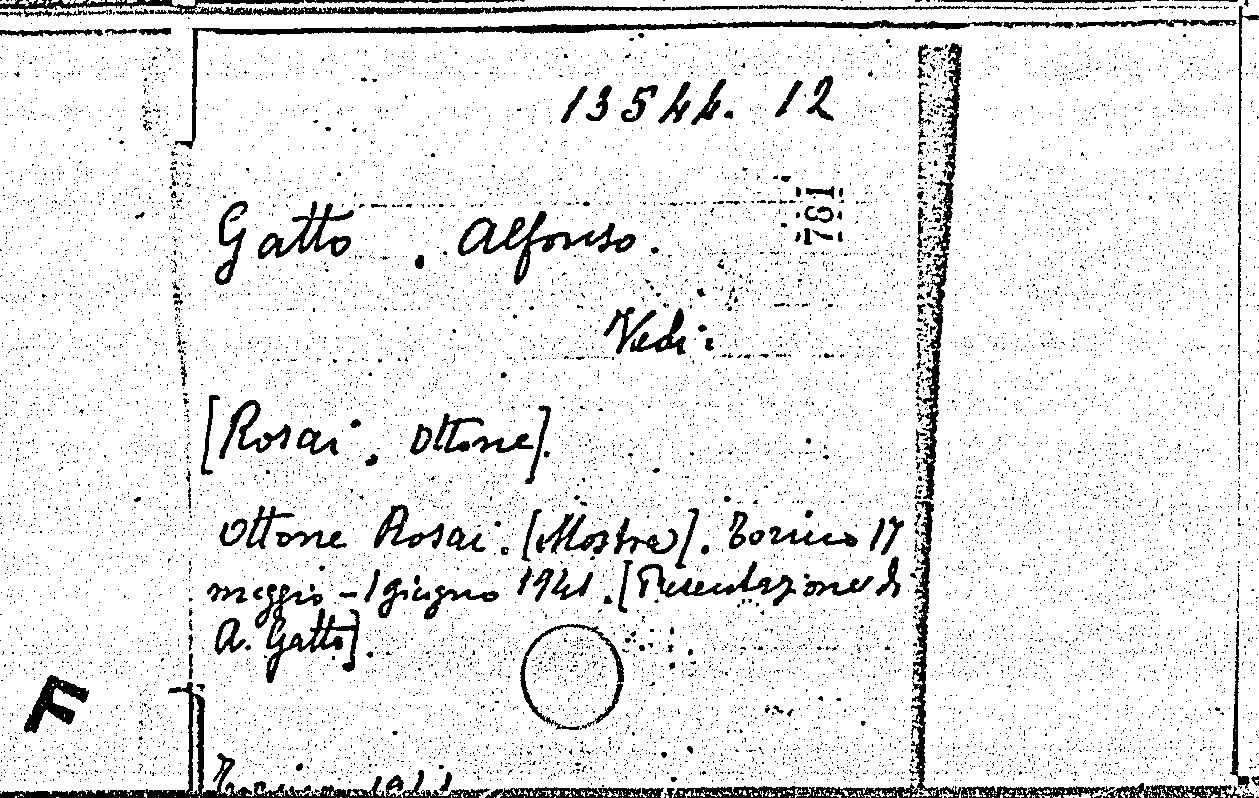 13544. 12
781
Gatto. Alfonso.
Vedi:
[Rosai. Ottone].
Ottone Rosai. [Mostra]. Torino 17
maggio - 1 giugno 1941. [Presentazione di
A. Gatto].
F